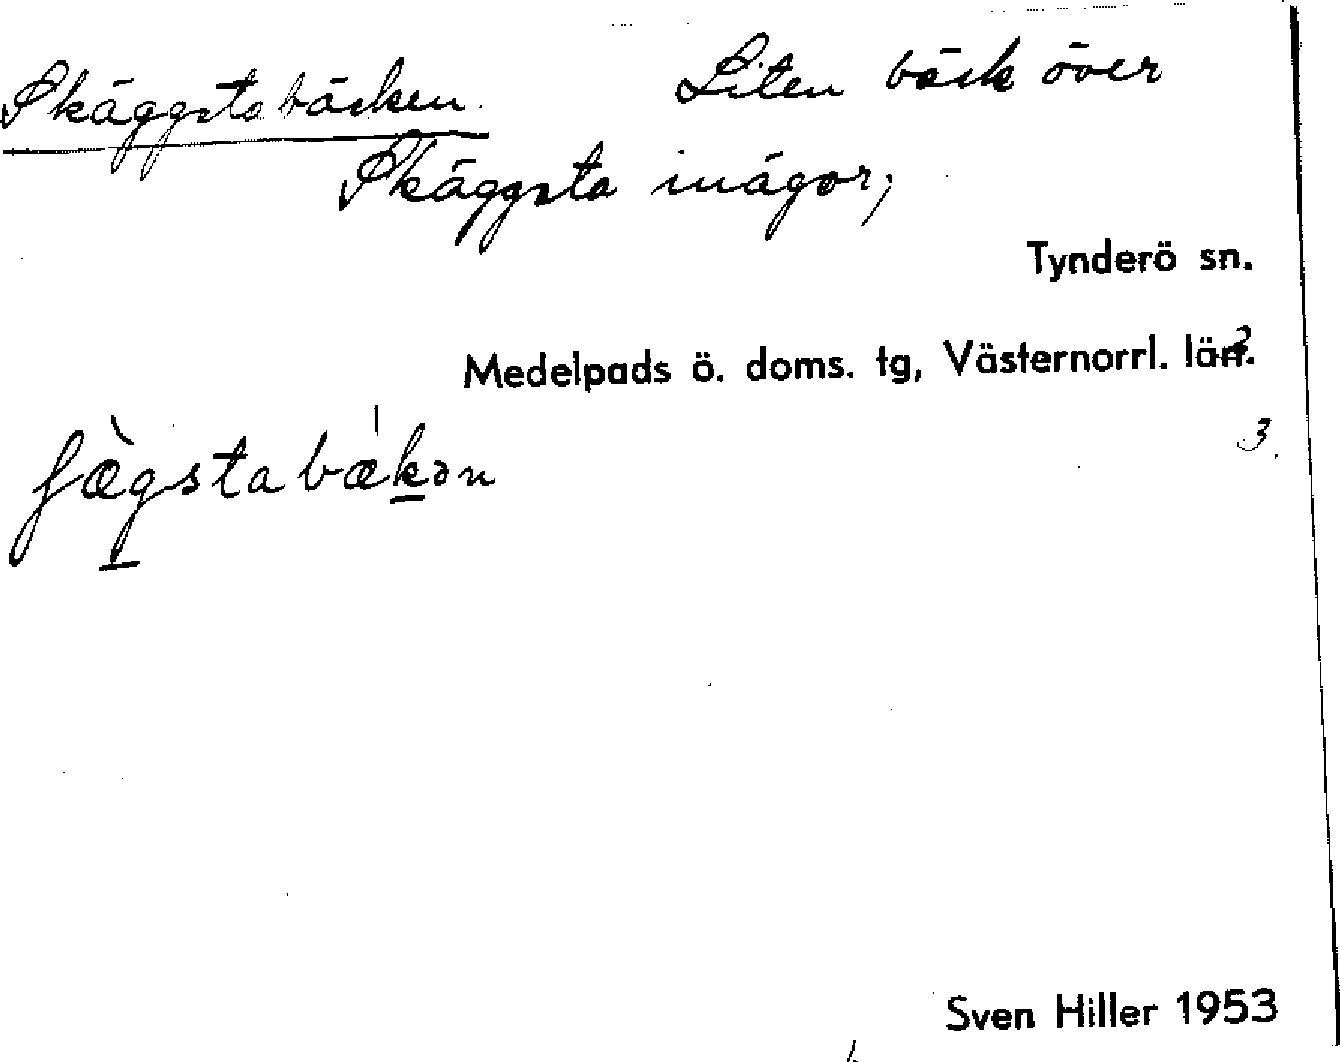 Skäggstabäcken. Liten bäck över
Skäggsta inägor;
Tynderö sn.
Medelpads ö. doms. tg, Västernorrl. län.
3.
ʃæ̀gstabækən
Sven Hiller 1953